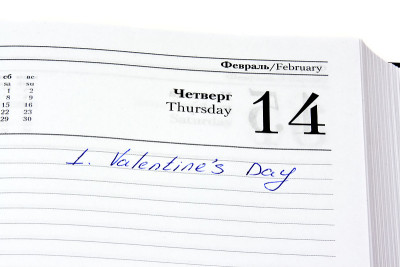 Февраль/February
сб вс
sa su
1 2
8 9
15 16
22 23
29 30
Четверг
Thursday
14
1. Valentine's Day